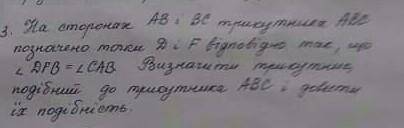 3. На сторонах AB і BC трикутника ABC
позначено точки D і F відповідно так, що
∠ DFB = ∠ CAB. Визначити трикутник,
подібний до трикутника ABC і довести
їх подібність.